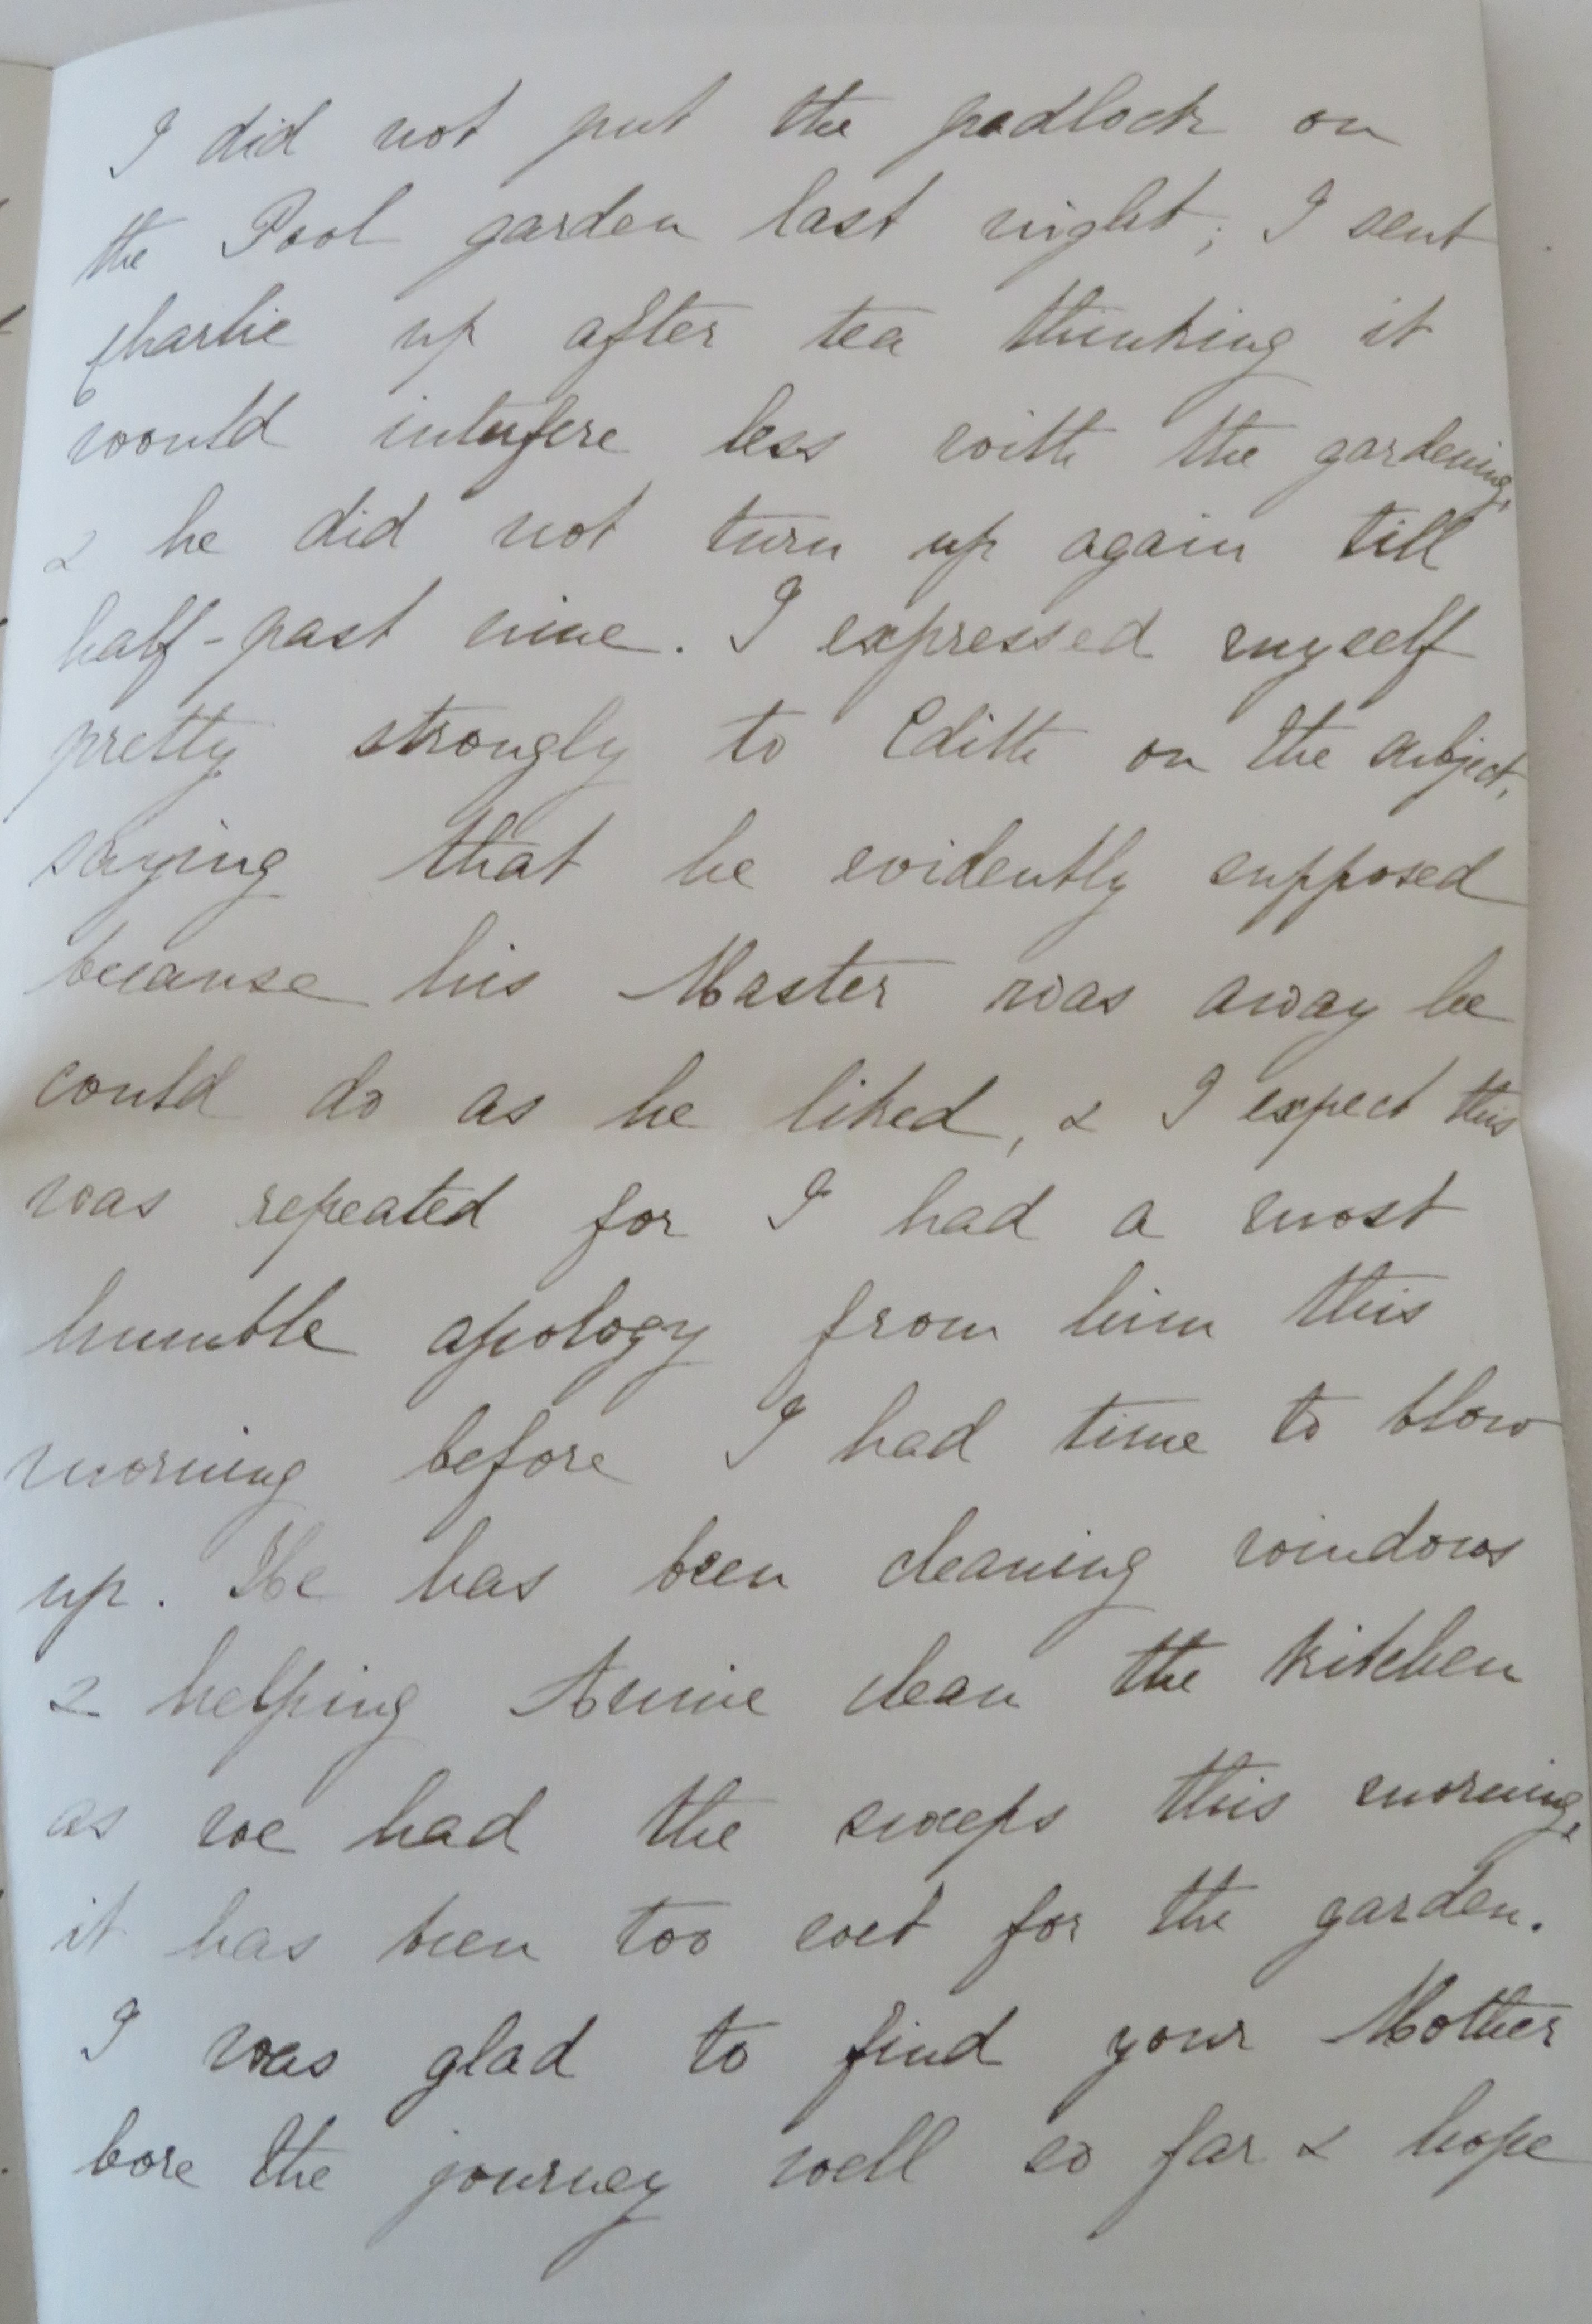 I did not put the padlock on
the Pool garden last night; I sent
Charlie up after tea thinking it
would interfere less with the gardening,
& he did not turn up again till
half-past nine. I expressed myself
pretty strongly to Edith on the subject,
saying that he evidently supposed
because his Master was away he
could do as he liked, & I expect this
was repeated for I had a most
humble apology from him this
morning before I had time to blow
up. He has been cleaning windows
& helping Annie clean the kitchen
as we had the sweeps this morning,
it has been too wet for the garden.
I was glad to find your Mother
bore the journey well so far & hope